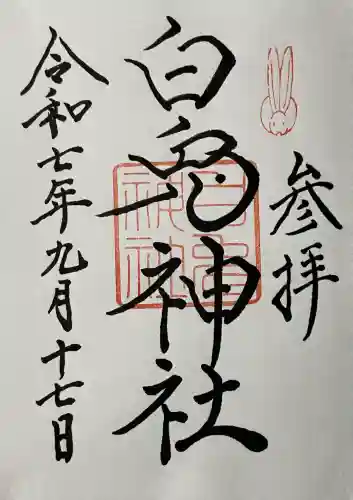 参拝
白鳥神社
白鳥神社
令和七年九月十七日